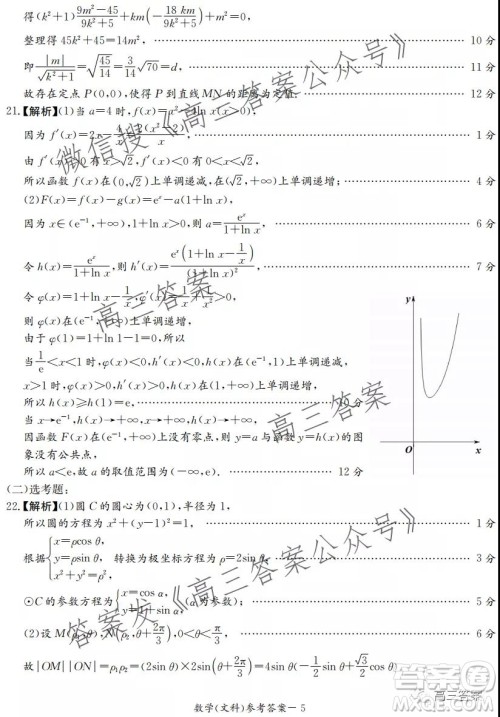 得(k²+1)(9m²−45)/(9k²+5)+km(−18km/(9k²+5))+m²=0,
整理得 45k²+45=14m², 10 分
即|m|/√(k²+1)=√(45/14)=(3/14)√70=d, 11 分
故存在定点 P(0,0),使得 P 到直线 MN 的距离为定值. 12 分
21.【解析】(1)当 a=4 时,f(x)=x²−4ln x(x>0), 1 分
因为 f′(x)=2x−4/x=2(x²−2)/x, 2 分
由 f′(x)>0 有 x>√2,f′(x)<0 有 0<x<√2, 3 分
所以函数 f(x)在(0,√2)上单调递减,在(√2,+∞)上单调递增; 4 分
(2)F(x)=f(x)−g(x)=eˣ−a(1+ln x),
因为 x∈(e⁻¹,+∞),1+ln x>0,则 a=eˣ/(1+ln x), 6 分
令 h(x)=eˣ/(1+ln x),则 h′(x)=eˣ(1+ln x−1/x)/(1+ln x)², 7 分
令 φ(x)=1+ln x−1/x,
则 φ(x)在(e⁻¹,+∞)上单调递增,
由于 φ(1)=1+ln 1−1=0,
当1/e<x<1 时,φ(x)<0,h′(x)<0,h(x)在(e⁻¹,1)上单调递减,
x>1 时,φ(x)>0,h′(x)>0,h(x)在(1,+∞)上单调递增,
所以 h(x)≥h(1)=e. 10 分
当 x→e⁻¹,h(x)→+∞,x→+∞,h(x)→+∞,
因函数 F(x)在(e⁻¹,+∞)上没有零点,则 y=a 与函数 y=h(x)的图
象没有公共点,
所以 a<e,故 a 的取值范围为(−∞,e). 12 分
y
O
x
(二)选考题:
22.【解析】(1)圆 C 的圆心为(0,1),半径为 1,
所以圆的方程为 x²+(y−1)²=1. 1 分
根据{x=ρcos θ, y=ρsin θ, x²+y²=ρ², 转换为极坐标方程为 ρ=2sin θ, 3 分
⊙C 的参数方程为{x=cos α, y=1+sin α,(α为参数); 5 分
(2)设 M(ρ₁,θ),N(ρ₂,θ+2π/3),0<θ<π/3, 6 分
故|OM||ON|=ρ₁ρ₂=(2sin θ)×2sin(θ+2π/3)=4sin θ(−1/2 sin θ+√3/2 cos θ)
数学(文科)参考答案－5
微信搜《高三答案公众号》
高三答案
高三答案
《高三答案公众号》
高三答案